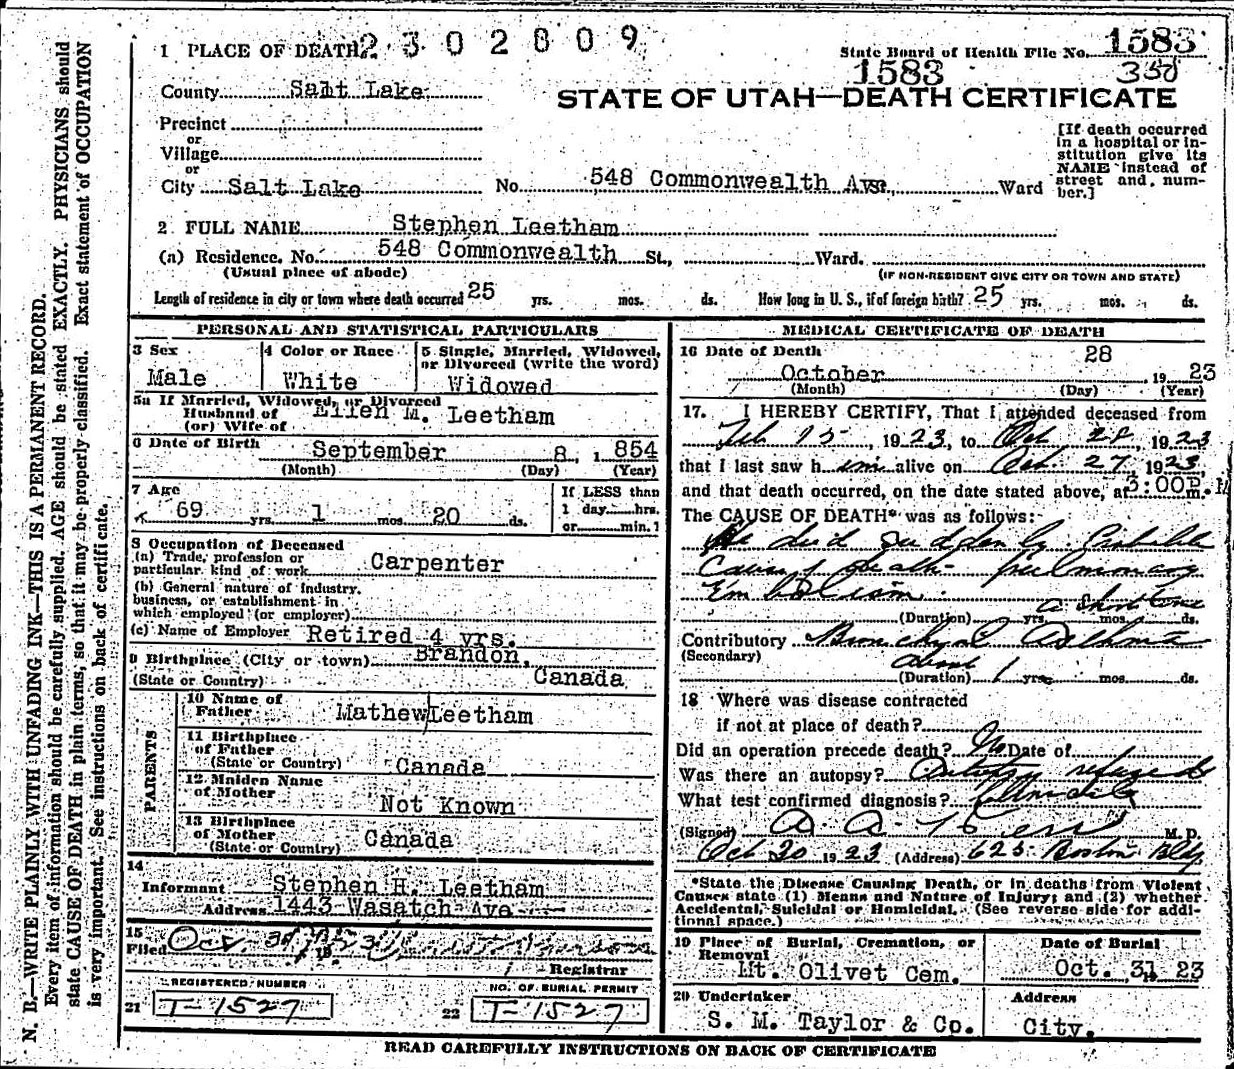 N. B.—WRITE PLAINLY WITH UNFADING INK—THIS IS A PERMANENT RECORD.
Every item of information should be carefully supplied. AGE should be stated EXACTLY. PHYSICIANS should
state CAUSE OF DEATH in plain terms, so that it may be properly classified. Exact statement of OCCUPATION
is very important. See instructions on back of certificate.
1 PLACE OF DEATH 2 3 0 2 8 0 9
State Board of Health File No. 1583
1583 350
County Salt Lake
STATE OF UTAH—DEATH CERTIFICATE
Precinct
or
Village
or
City Salt Lake No. 548 Commonwealth Ave. St., Ward
[If death occurred
in a hospital or in-
stitution give its
NAME instead of
street and num-
ber.]
2 FULL NAME Stephen Leetham
(a) Residence. No. 548 Commonwealth St., Ward.
(Usual place of abode) (IF NON-RESIDENT GIVE CITY OR TOWN AND STATE)
Length of residence in city or town where death occurred 25 yrs. mos. ds. How long in U. S., if of foreign birth? 25 yrs. mos. ds.
PERSONAL AND STATISTICAL PARTICULARS
3 Sex
Male
4 Color or Race
White
5 Single, Married, Widowed,
or Divorced (write the word)
Widowed
5a If Married, Widowed, or Divorced
Husband of Ellen M. Leetham
(or) Wife of
6 Date of Birth September 8, 1 854
(Month) (Day) (Year)
7 Age
69 yrs. 1 mos. 20 ds.
If LESS than
1 day hrs.
or min.?
8 Occupation of Deceased
(a) Trade, profession or
particular kind of work Carpenter
(b) General nature of industry,
business, or establishment in
which employed (or employer)
(c) Name of Employer Retired 4 yrs.
9 Birthplace (City or town) Brandon,
(State or Country) Canada
PARENTS
10 Name of
Father Mathew Leetham
11 Birthplace
of Father
(State or Country) Canada
12 Maiden Name
of Mother Not Known
13 Birthplace
of Mother
(State or Country) Canada
14
Informant Stephen H. Leetham
Address 1443 Wasatch Ave
15
Filed Oct 31, 1923
Registrar
REGISTERED NUMBER
21 T-1527
NO. OF BURIAL PERMIT
22 T-1527
MEDICAL CERTIFICATE OF DEATH
16 Date of Death
October 28 19 23
(Month) (Day) (Year)
17. I HEREBY CERTIFY, That I attended deceased from
Feb 15, 1923, to Oct 28, 1923
that I last saw him alive on Oct. 27, 1923
and that death occurred, on the date stated above, at 3:00P m. M
The CAUSE OF DEATH* was as follows:
He died suddenly. Probable
Cause of Death - pulmonary
Embolism.
(Duration) yrs. a short time mos. ds.
Contributory Bronchial Asthma
(Secondary)
(Duration) about 1 yrs. mos. ds.
18 Where was disease contracted
if not at place of death?
Did an operation precede death? No Date of
Was there an autopsy? Autopsy refused
What test confirmed diagnosis? Clinical
(Signed) M.D.
Oct 30 1923 (Address) 625 Boston Bldg
*State the Disease Causing Death, or in deaths from Violent
Causes state (1) Means and Nature of Injury; and (2) whether
Accidental, Suicidal or Homicidal. (See reverse side for addi-
tional space.)
19 Place of Burial, Cremation, or
Removal
Mt. Olivet Cem.
Date of Burial
Oct. 31 23
20 Undertaker
S. M. Taylor & Co.
Address
City.
READ CAREFULLY INSTRUCTIONS ON BACK OF CERTIFICATE